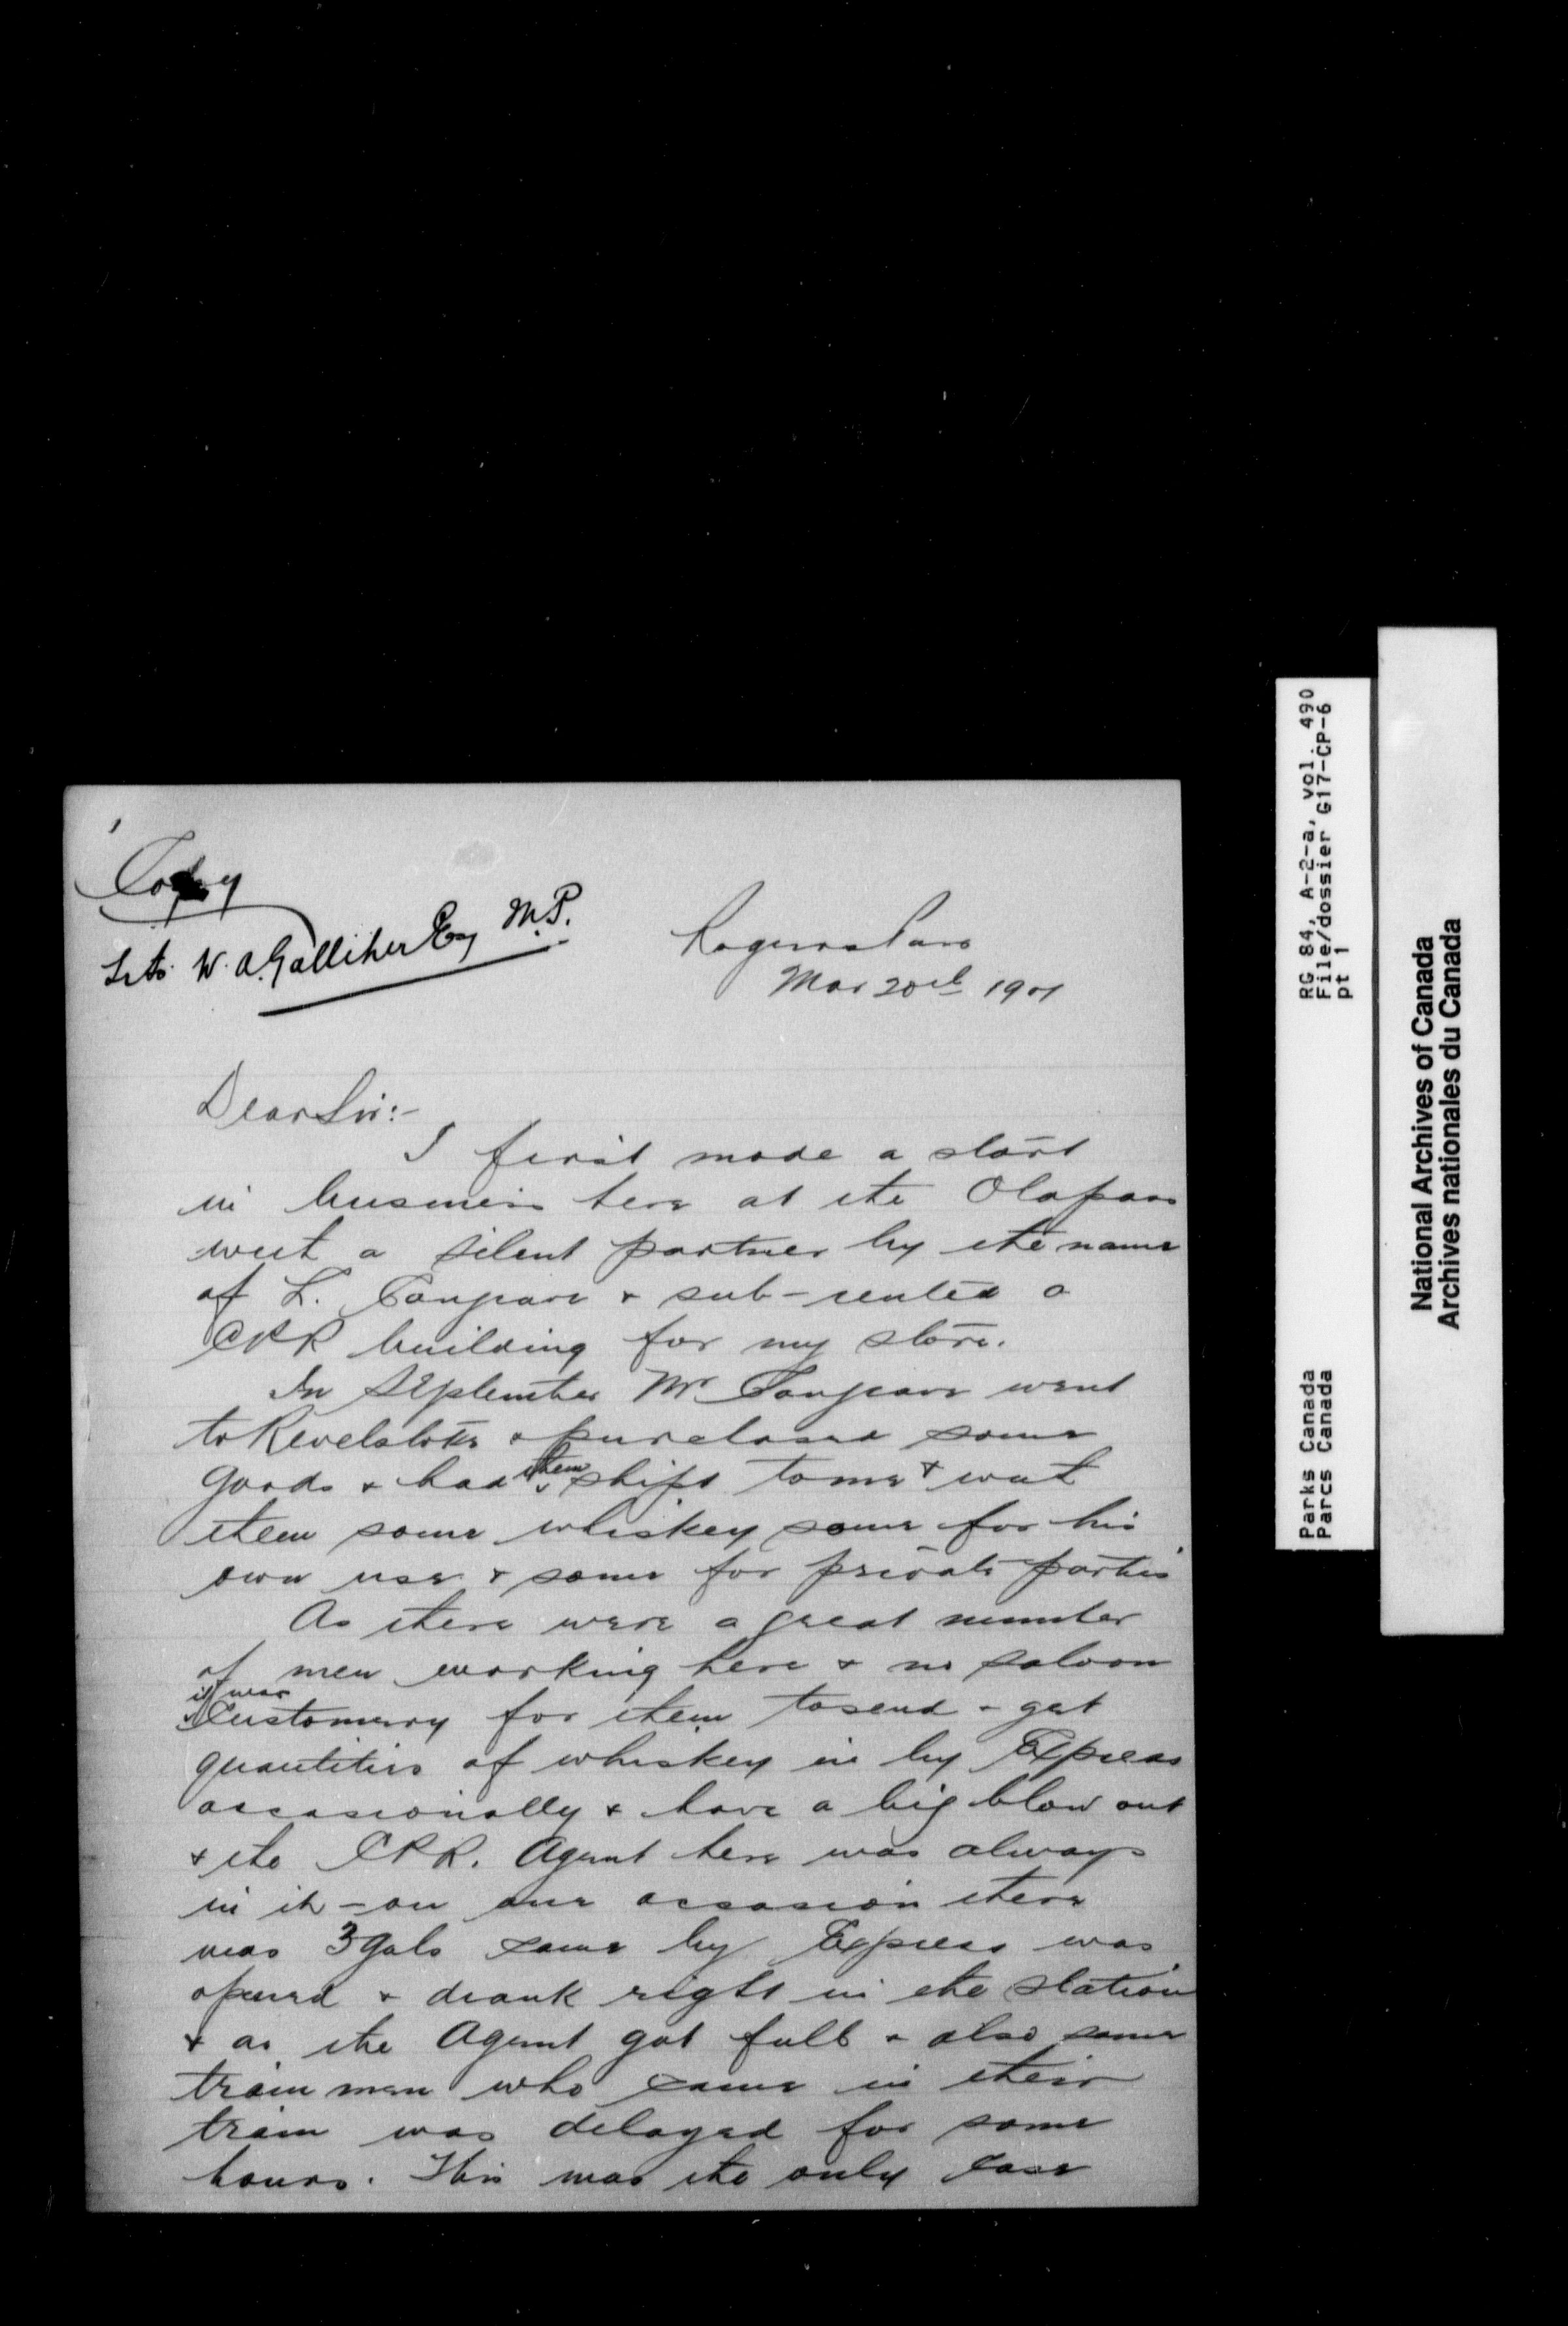 Copy
W. A. Galliher Esq M.P.
Rogers Pass
Mar 20th 1901
Dear Sir:-
I first made a start
in business here at the Old pass
with a silent partner by the name
of L. & sub-rented a
CPR building for my store.
In September Mr went
to Revelstoke & purchased some
goods & had them shipt to me & wit
them some whiskey some for his
own use & some for private parties
As there were a great number
of men working here & no saloon
it was customary for them to send & get
quantities of whiskey in by Express
occasionally & have a big blow out
& the CPR. Agent here was always
in it - on one occasion there
was 3 gals came by Express was
opened & drank right in the station
& as the Agent got full & also some
train men who came in their
train was delayed for some
hours. This was the only case
RG 84, A-2-a, vol. 490
File/dossier G17-CP-6
pt 1
Parks Canada
Parcs Canada
National Archives of Canada
Archives nationales du Canada